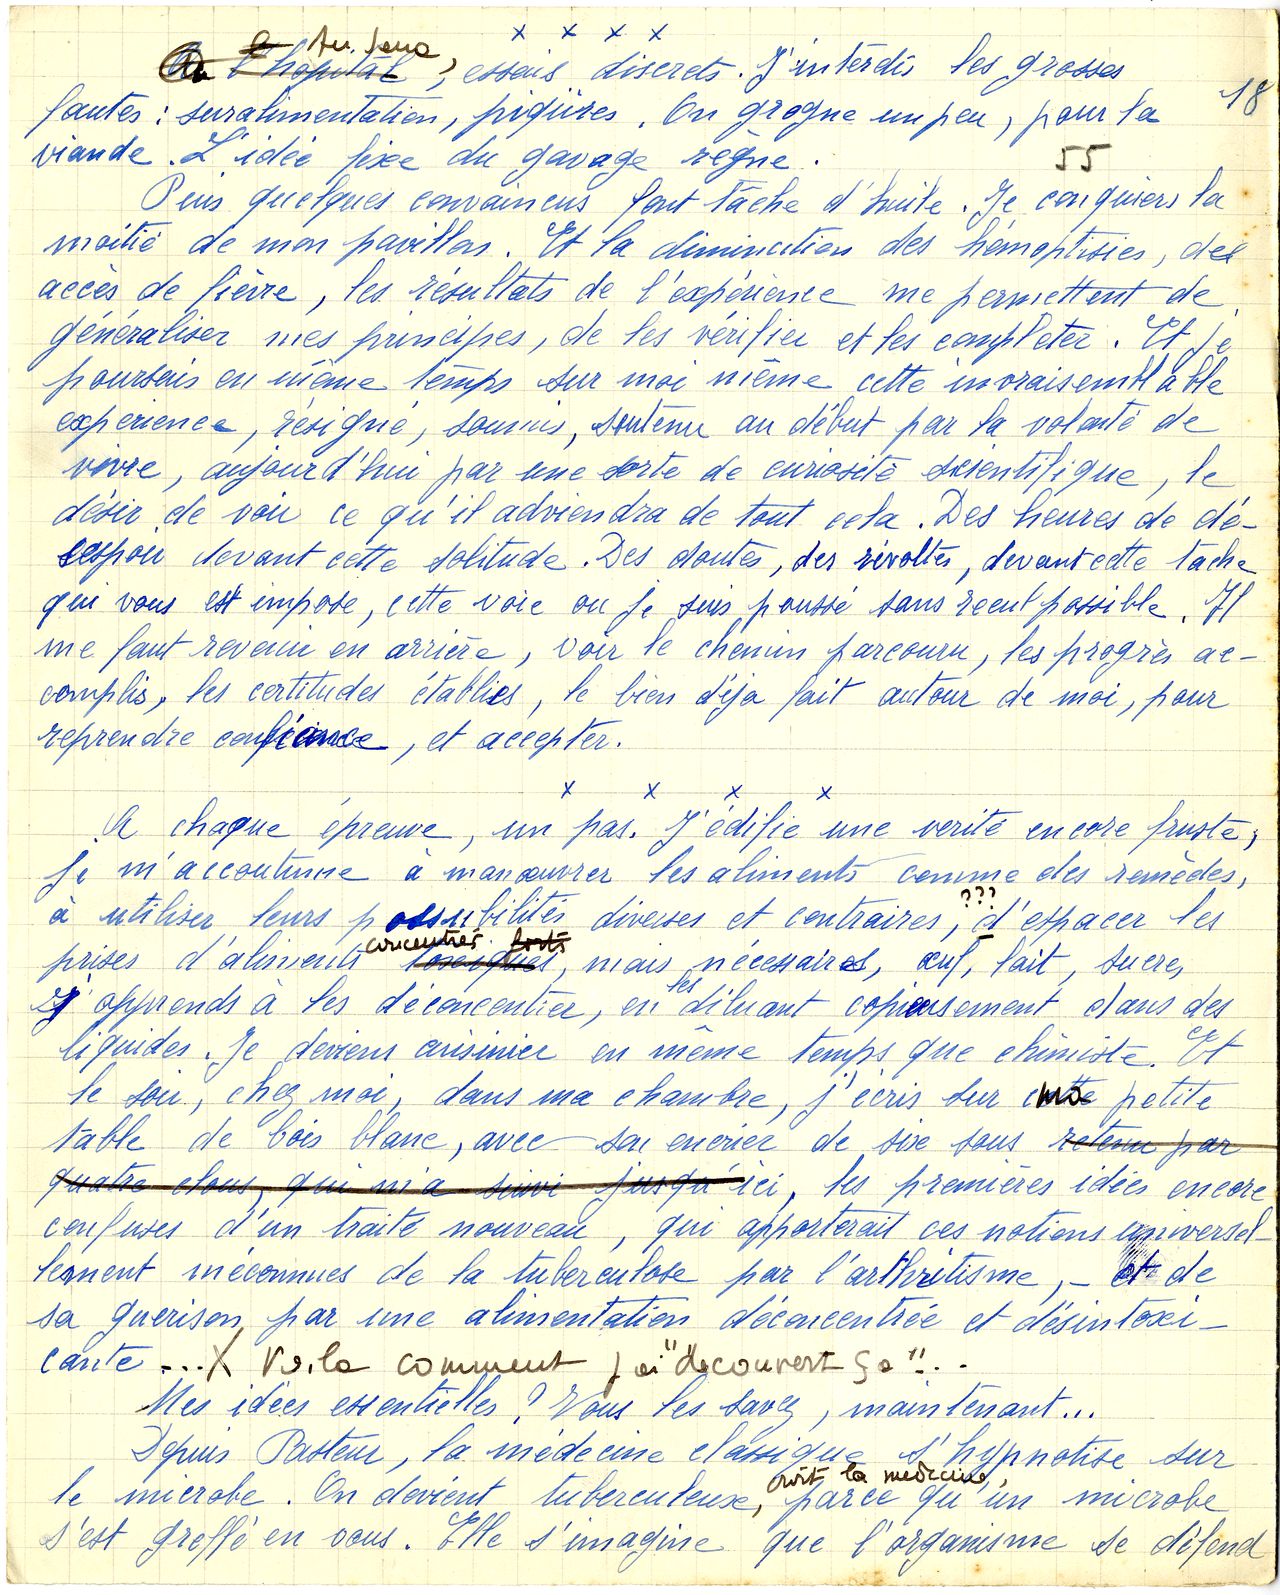 x x x x
Au sana
l'hopital, essais discrets. J'interdis les grosses
18
fautes : suralimentation, piqûres. On grogne un peu, pour la
viande. L'idée fixe du gavage règne.
55
Puis quelques convaincus font tâche d'huile. Je conquiers la
moitié de mon pavillon. Et la diminution des hémoptisies, des
accès de fièvre, les résultats de l'expérience me permettent de
généraliser mes principes, de les vérifier et les completer. Et je
poursuis en même temps sur moi même cette invraisemblable
experience, résigné, soumis, soutenu au début par la volonté de
vivre, aujourd'hui par une sorte de curiosité scientifique, le
désir de voir ce qu'il adviendra de tout cela. Des heures de dé-
sespoir devant cette solitude. Des doutes, des révoltes, devant cette tache
qui vous est impose, cette voie ou je suis poussé sans recul possible. Il
me faut revenir en arrière, voir le chemin parcouru, les progrès ac-
complis, les certitudes établies, le bien déja fait autour de moi, pour
reprendre confiance, et accepter.
x x x x
A chaque épreuve, un pas. J'édifie une verité encore fruste,
je m'accoutume à manœuvrer les aliments comme des remèdes,
à utiliser leurs possibilités diverses et contraires, d'espacer les
???
concentrés forts
prises d'aliments toxiques, mais nécessaires, œuf, lait, sucre,
J'apprends à les déconcentrer, en les diluant copieusement dans des
liquides. Je deviens cuisinier en même temps que chimiste. Et
le soir, chez moi, dans ma chambre, j'écris sur ma petite
table de bois blanc, avec son encrier de six sous retenu par
quatre clous, qui m'a suivi jusqu'ici, les premières idées encore
confuses d'un traité nouveau, qui apporterait ces notions universel-
lement méconnues de la tuberculose par l'arthritisme, - et de
sa guerison par une alimentation déconcentrée et désintoxi-
cante ... X Voila comment j'ai "découvert ça"...
Mes idées essentielles ? Vous les savez, maintenant...
Depuis Pasteur, la médecine classique s'hypnotise sur
croit la médecine,
le microbe. On devient tuberculeux, parce qu'un microbe
s'est greffé en vous. Elle s'imagine que l'organisme se défend